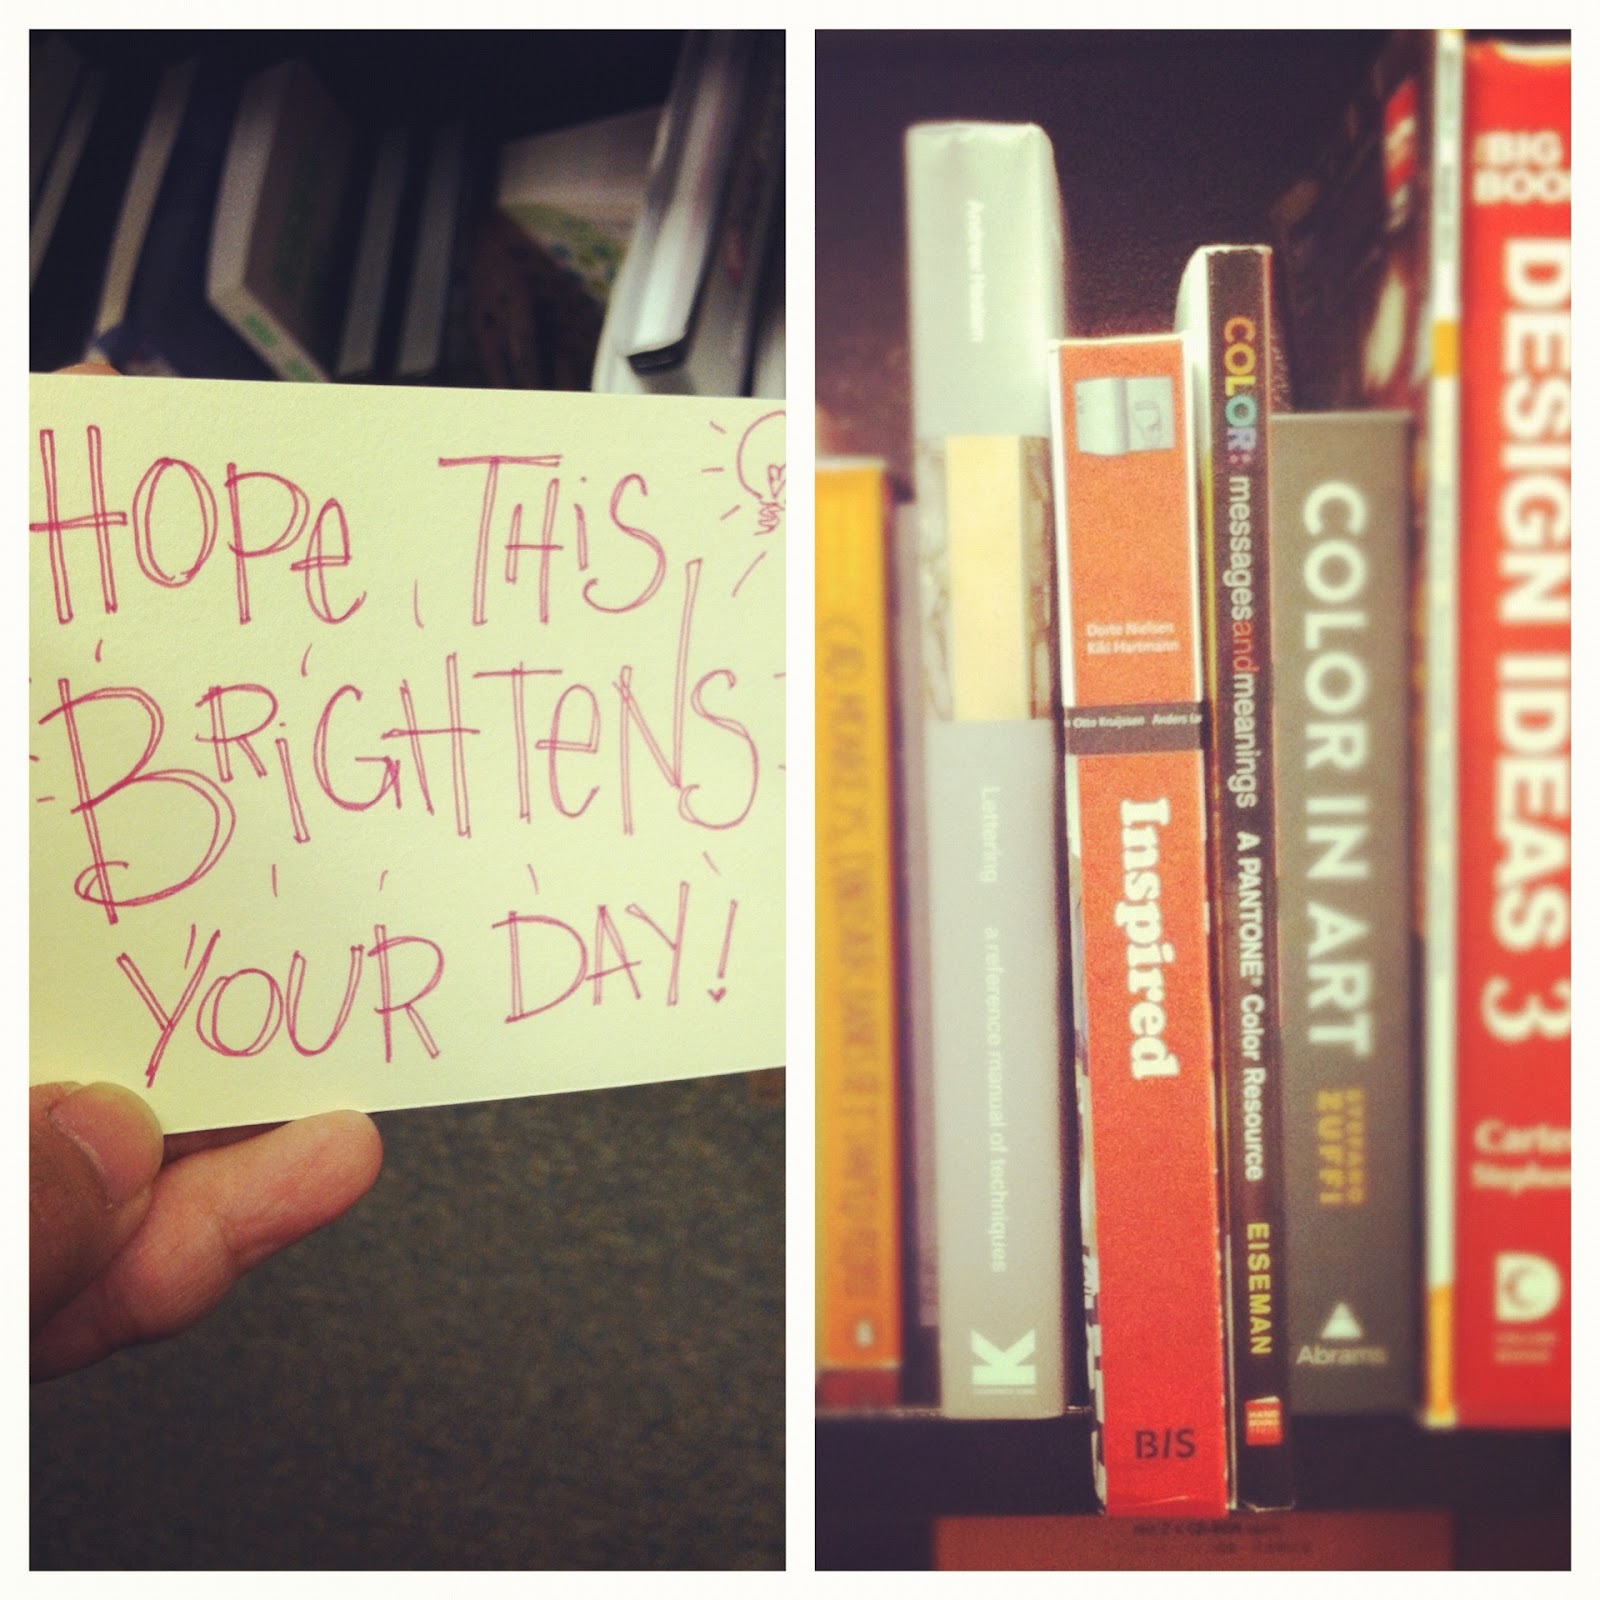 HOPE THIS
BRIGHTENS
YOUR DAY!
Lettering a reference manual of techniques
K
Dorte Nielsen
Kiki Hartmann
Otto Kruijssen Anders
Inspired
B/S
COLOR: messagesandmeanings A PANTONE® Color Resource EISEMAN
COLOR IN ART
STEFANO
ZUFFI
Abrams
BIG
BOO
DESIGN IDEAS 3
Carte
Stephen